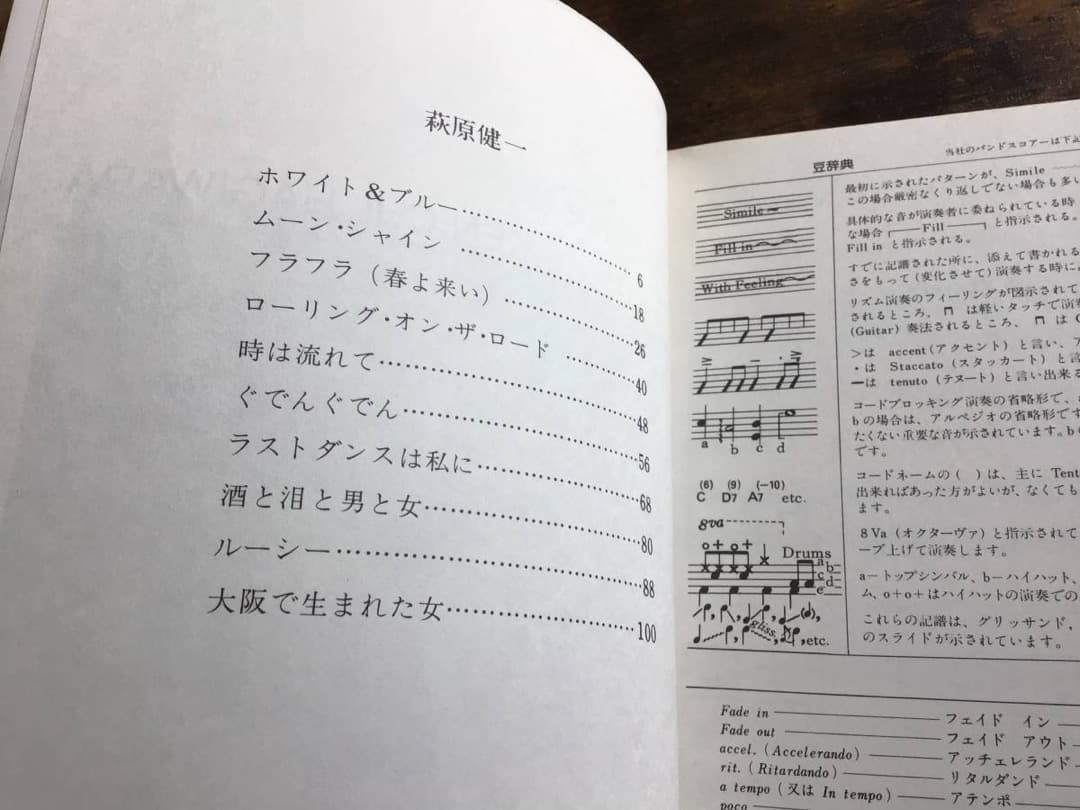 萩原健一
ホワイト&ブルー……………………6
ムーン・シャイン……………………18
フラフラ(春よ来い)……………………26
ローリング・オン・ザ・ロード……………………40
時は流れて……………………48
ぐでんぐでん……………………56
ラストダンスは私に……………………68
酒と泪と男と女……………………80
ルーシー……………………88
大阪で生まれた女……………………100
豆辞典
当社のバンドスコアーは下記
Simile
Fill in
With Feeling
a b c d
(6) (9) (-10)
C D7 A7 etc.
8va
Drums
a
b
c
d
e
gliss.
etc.
最初に示されたパターンが、Simile
この場合厳密なくり返しでない場合も多い
具体的な音が演奏者に委ねられている時
な場合 Fill と指示される。
Fill in と指示される。
すでに記譜された所に、添えて書かれる
さをもって(変化させて)演奏する時に
リズム演奏のフィーリングが図示されて
されるところ、⊓ は軽いタッチで演
(Guitar) 奏法されるところ、⊓ は
>は accent(アクセント)と言い、
・は Staccato(スタッカート)と言
ーは tenuto(テヌート)と言い出来る
コードブロッキング演奏の省略形で、
bの場合は、アルペジオの省略形で
たくない重要な音が示されています。b
です。
コードネームの( )は、主に Tent
出来ればあった方がよいが、なくても
ます。
8Va(オクターヴァ)と指示されて
ーブ上げて演奏します。
a−トップシンバル、b−ハイハット、
ム、o+o+はハイハットの演奏での
これらの記譜は、グリッサンド、
のスライドが示されています。
Fade in フェイド イン
Fade out フェイド アウト
accel. (Accelerando) アッチェレランド
rit. (Ritardando) リタルダンド
a tempo (又は In tempo) アテンポ
poco